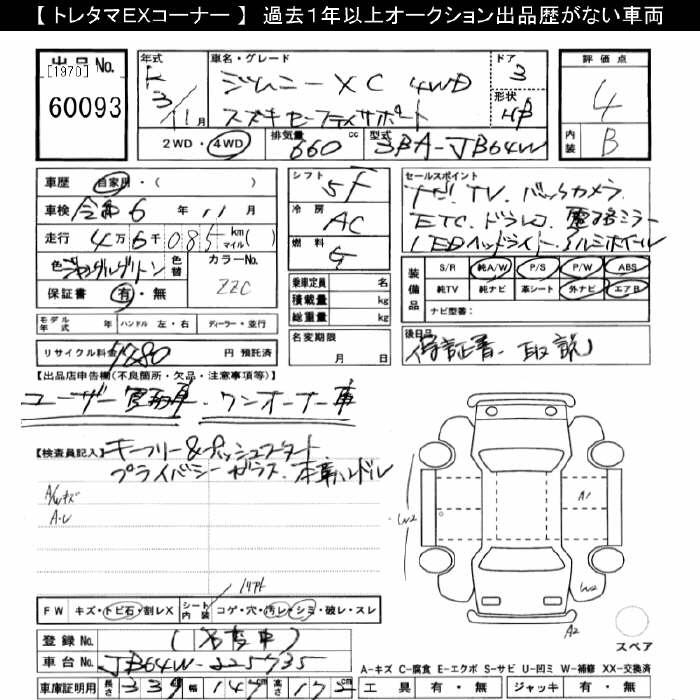 【 トレタマEXコーナー 】 過去1年以上オークション出品歴がない車両
出品 No.
[1970]
60093
年式
R
3/11月
車名・グレード
ジムニー XC 4WD
スズキセーフティサポート
ドア
3
形状
HB
評価点
4
内装
B
2WD・4WD
排気量 660 cc
型式 3BA-JB64W
車歴 自家用・( )
車検 令和6年11月
走行 4万6千085 km マイル ( )
色 ジャングルグリーン 色替
カラーNo. ZZC
保証書 有・無
シフト 5F
冷房 AC
燃料 G
乗車定員 名
積載量 kg
総重量 kg
セールスポイント
ナビ. TV. バックカメラ.
ETC. ドラレコ. 電格ミラー
LEDヘッドライト. アルミホイール
装備品
S/R 純A/W P/S P/W ABS
純TV 純ナビ 革シート 外ナビ エアB
ナビ型番:
モデル年式 年 ハンドル 左・右 ディーラー・並行
リサイクル料金 円 預託済
名変期限
月 日
後日品
保証書. 取説
【出品店申告欄(不良箇所・欠品・注意事項等)】
ユーザー買取車. ワンオーナー車
【検査員記入】
キーフリー&プッシュスタート
プライバシーガラス. 本革ハンドル
A/Wキズ
A・U
A1
W2
W2
A2
FW キズ・トビ石・割レX シート内装 コゲ・穴・汚レ・シミ・破レ・スレ
登録 No. (名変車)
車台 No. JB64W-225735
車庫証明用 長さ 339 幅 147 高さ 172
スペア
A-キズ C-腐食 E-エクボ S-サビ U-凹ミ W-補修 XX-交換済
工具 有・無 ジャッキ 有・無